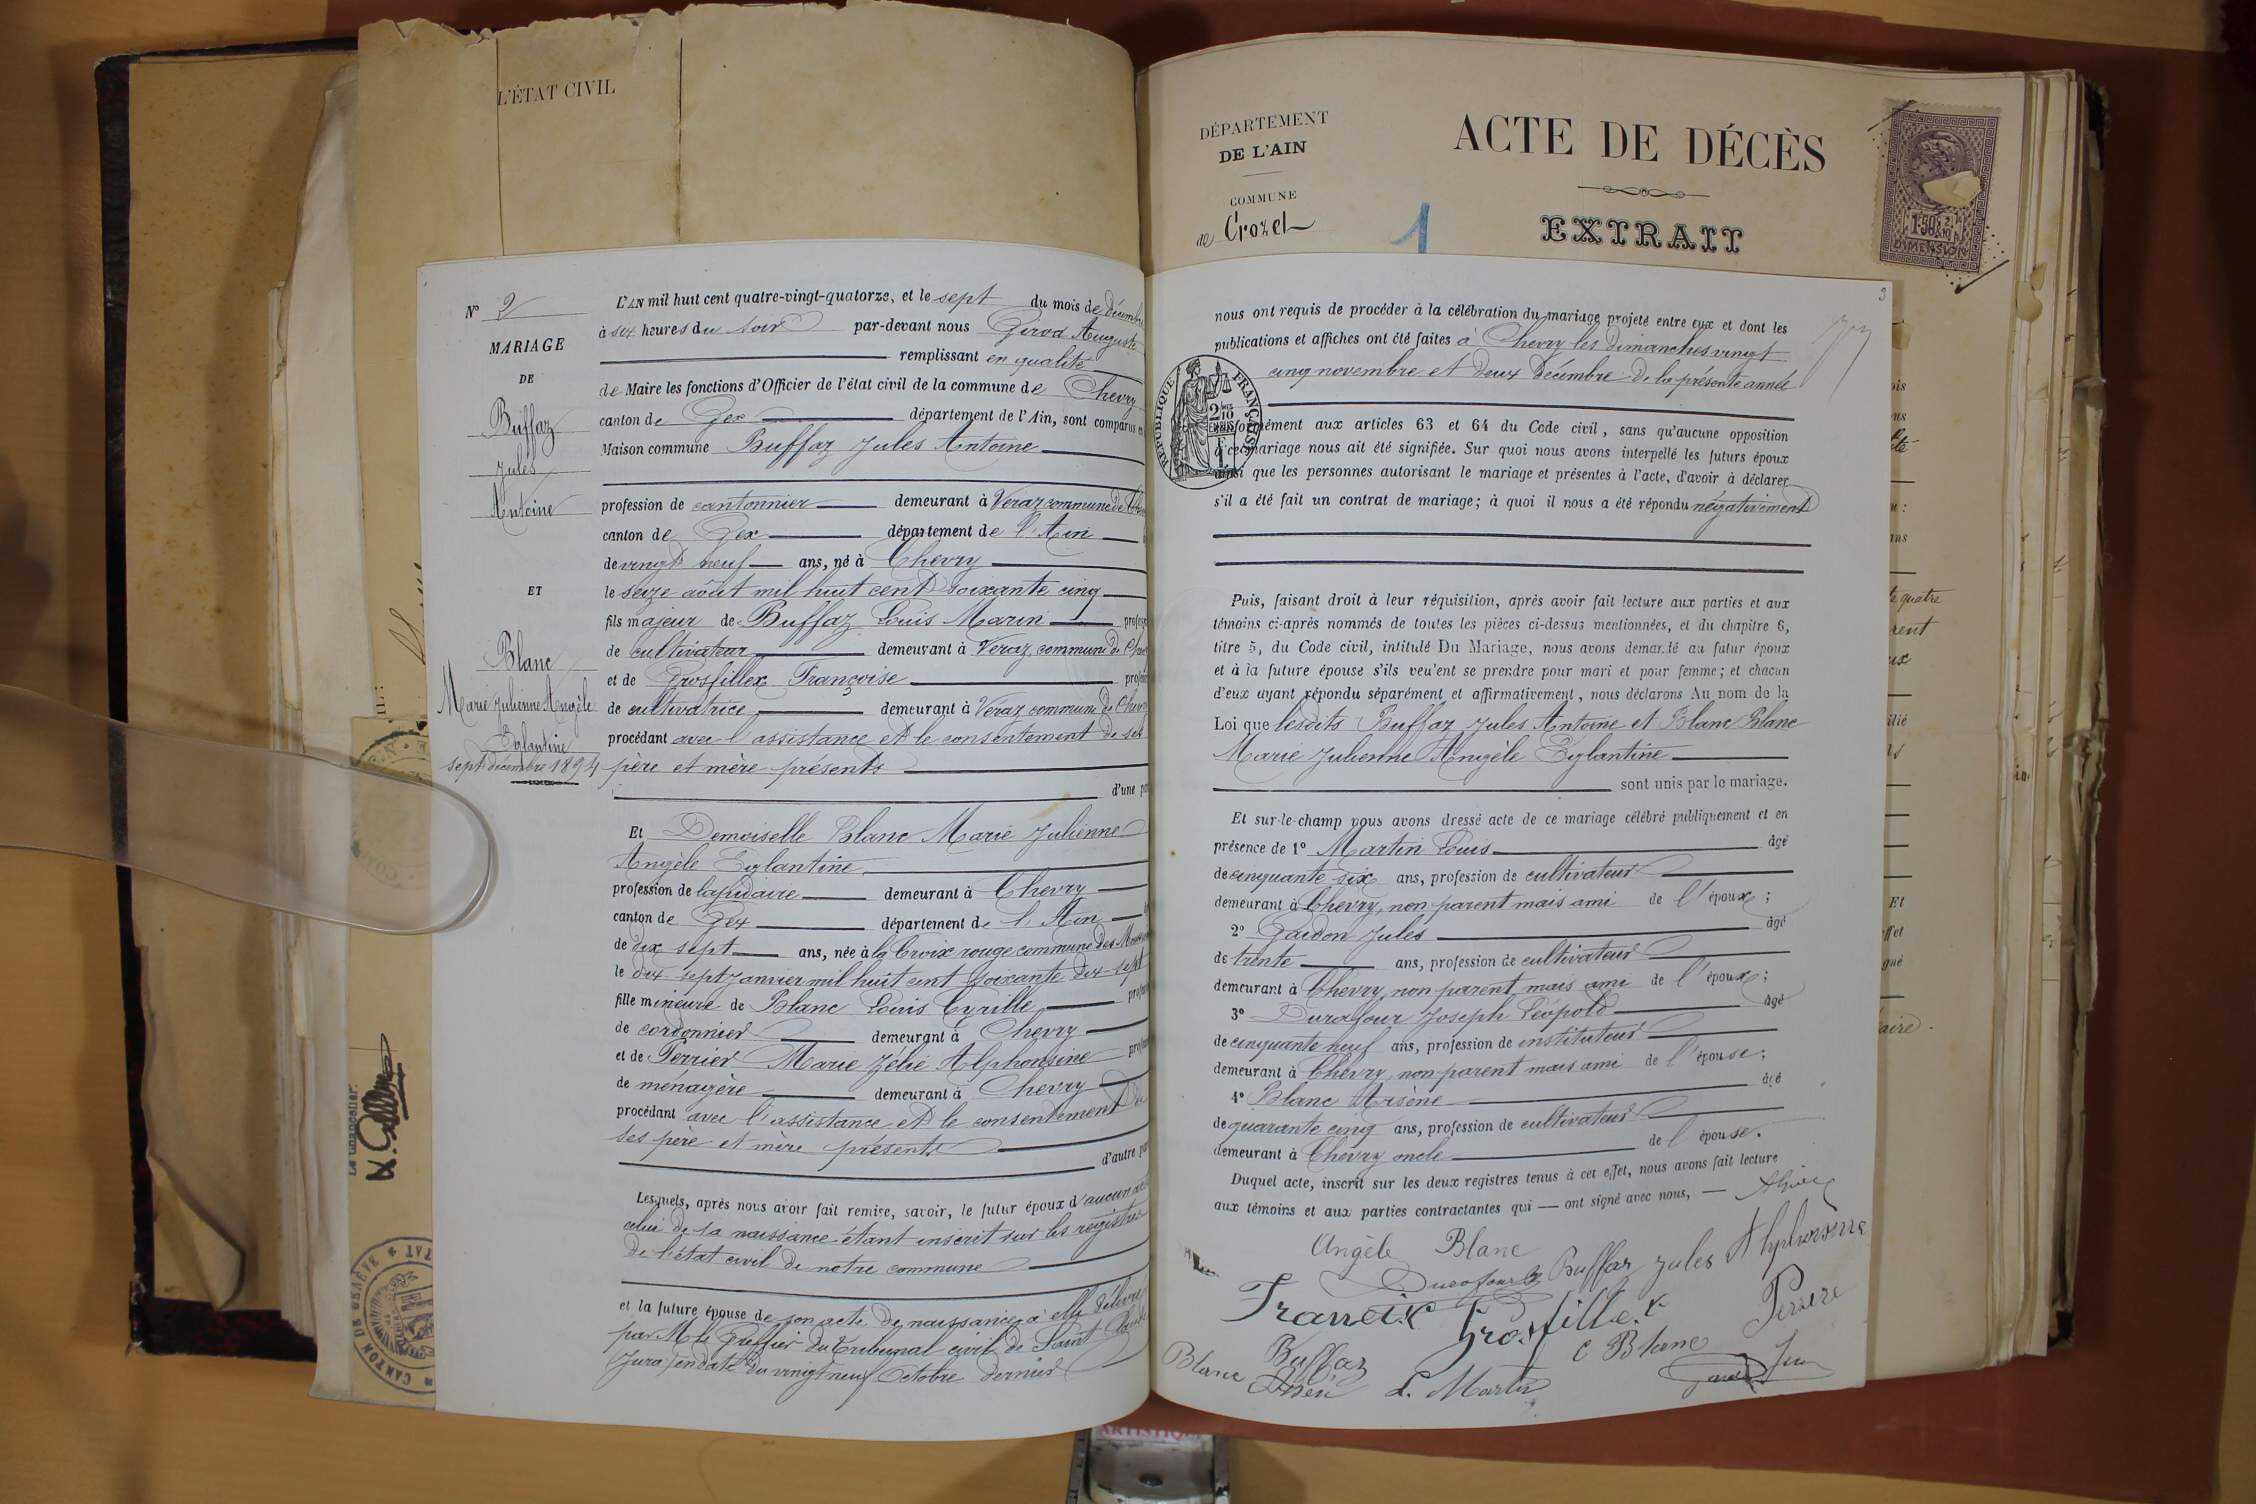 L'ÉTAT CIVIL
N° 2
MARIAGE
DE
Buffaz
Jules
Antoine
ET
Blanc
Marie Julienne Angèle
Eglantine
sept décembre 1894
L'AN mil huit cent quatre-vingt-quatorze, et le sept du mois de Décembre
à six heures du soir par-devant nous Girod Auguste
remplissant en qualité
de Maire les fonctions d'Officier de l'état civil de la commune de Chevry
canton de Gex département de l'Ain, sont comparus en
Maison commune Buffaz Jules Antoine
profession de cantonnier demeurant à Veraz commune de
canton de Gex département de l'Ain
de vingt neuf ans, né à Chevry
le seize août mil huit cent soixante cinq
fils majeur de Buffaz Louis Marin
de cultivateur demeurant à Veraz commune de
et de Grosfillex Françoise
de cultivatrice demeurant à Veraz commune de
procédant avec l'assistance et le consentement de ses
père et mère présents
d'une
Et Demoiselle Blanc Marie Julienne
Angèle Eglantine
profession de lapidaire demeurant à Chevry
canton de Gex département de l'Ain
de dix sept ans, née à la Croix rouge commune des
le dix sept janvier mil huit cent soixante dix-sept
fille mineure de Blanc Louis Cyrille
de cordonnier demeurant à Chevry
et de Perrier Marie Zélie Alphonsine
de menagère demeurant à Chevry
procédant avec l'assistance et le consentement de
ses père et mère présents
d'autre
Lesquels, après nous avoir fait remise, savoir, le futur époux d'aucun
celui de sa naissance étant inscrit sur les registres
de l'état civil de notre commune
et la future épouse de son acte de naissance à elle délivré
par M. le Greffier du Tribunal civil de Saint Claude
(Jura) en date du vingt neuf Octobre dernier
CANTON DE GENÈVE
DÉPARTEMENT
DE L'AIN
COMMUNE
de Crozet
1
ACTE DE DÉCÈS
EXTRAIT
DIMENSION
3
nous ont requis de procéder à la célébration du mariage projeté entre eux et dont les
publications et affiches ont été faites à Chevry les dimanches vingt
cinq novembre et deux Décembre de la présente année
RÉPUBLIQUE FRANÇAISE
conformément aux articles 63 et 64 du Code civil, sans qu'aucune opposition
à ce mariage nous ait été signifiée. Sur quoi nous avons interpellé les futurs époux
ainsi que les personnes autorisant le mariage et présentes à l'acte, d'avoir à déclarer
s'il a été fait un contrat de mariage; à quoi il nous a été répondu négativement
Puis, faisant droit à leur réquisition, après avoir fait lecture aux parties et aux
témoins ci-après nommés de toutes les pièces ci-dessus mentionnées, et du chapitre 6,
titre 5, du Code civil, intitulé Du Mariage, nous avons demandé au futur époux
et à la future épouse s'ils veulent se prendre pour mari et pour femme; et chacun
d'eux ayant répondu séparément et affirmativement, nous déclarons Au nom de la
Loi que lesdits Buffaz Jules Antoine et Blanc Blanc
Marie Julienne Angèle Eglantine
sont unis par le mariage.
Et sur-le-champ nous avons dressé acte de ce mariage célébré publiquement et en
présence de 1° Martin Louis âgé
de cinquante six ans, profession de cultivateur
demeurant à Chevry, non parent mais ami de l'époux;
2° Gaidon Jules âgé
de trente ans, profession de cultivateur
demeurant à Chevry, non parent mais ami de l'époux;
3° Durafour Joseph Léopold âgé
de cinquante neuf ans, profession de instituteur
demeurant à Chevry, non parent mais ami de l'épouse;
4° Blanc Arsène âgé
de quarante cinq ans, profession de cultivateur
demeurant à Chevry oncle de l'épouse.
Duquel acte, inscrit sur les deux registres tenus à cet effet, nous avons fait lecture
aux témoins et aux parties contractantes qui — ont signé avec nous, —
Angèle Blanc
Durafour Buffaz Jules Alphonsine
Francoix Grosfillex Perrier
Buffaz C Blanc
Blanc L. Martin